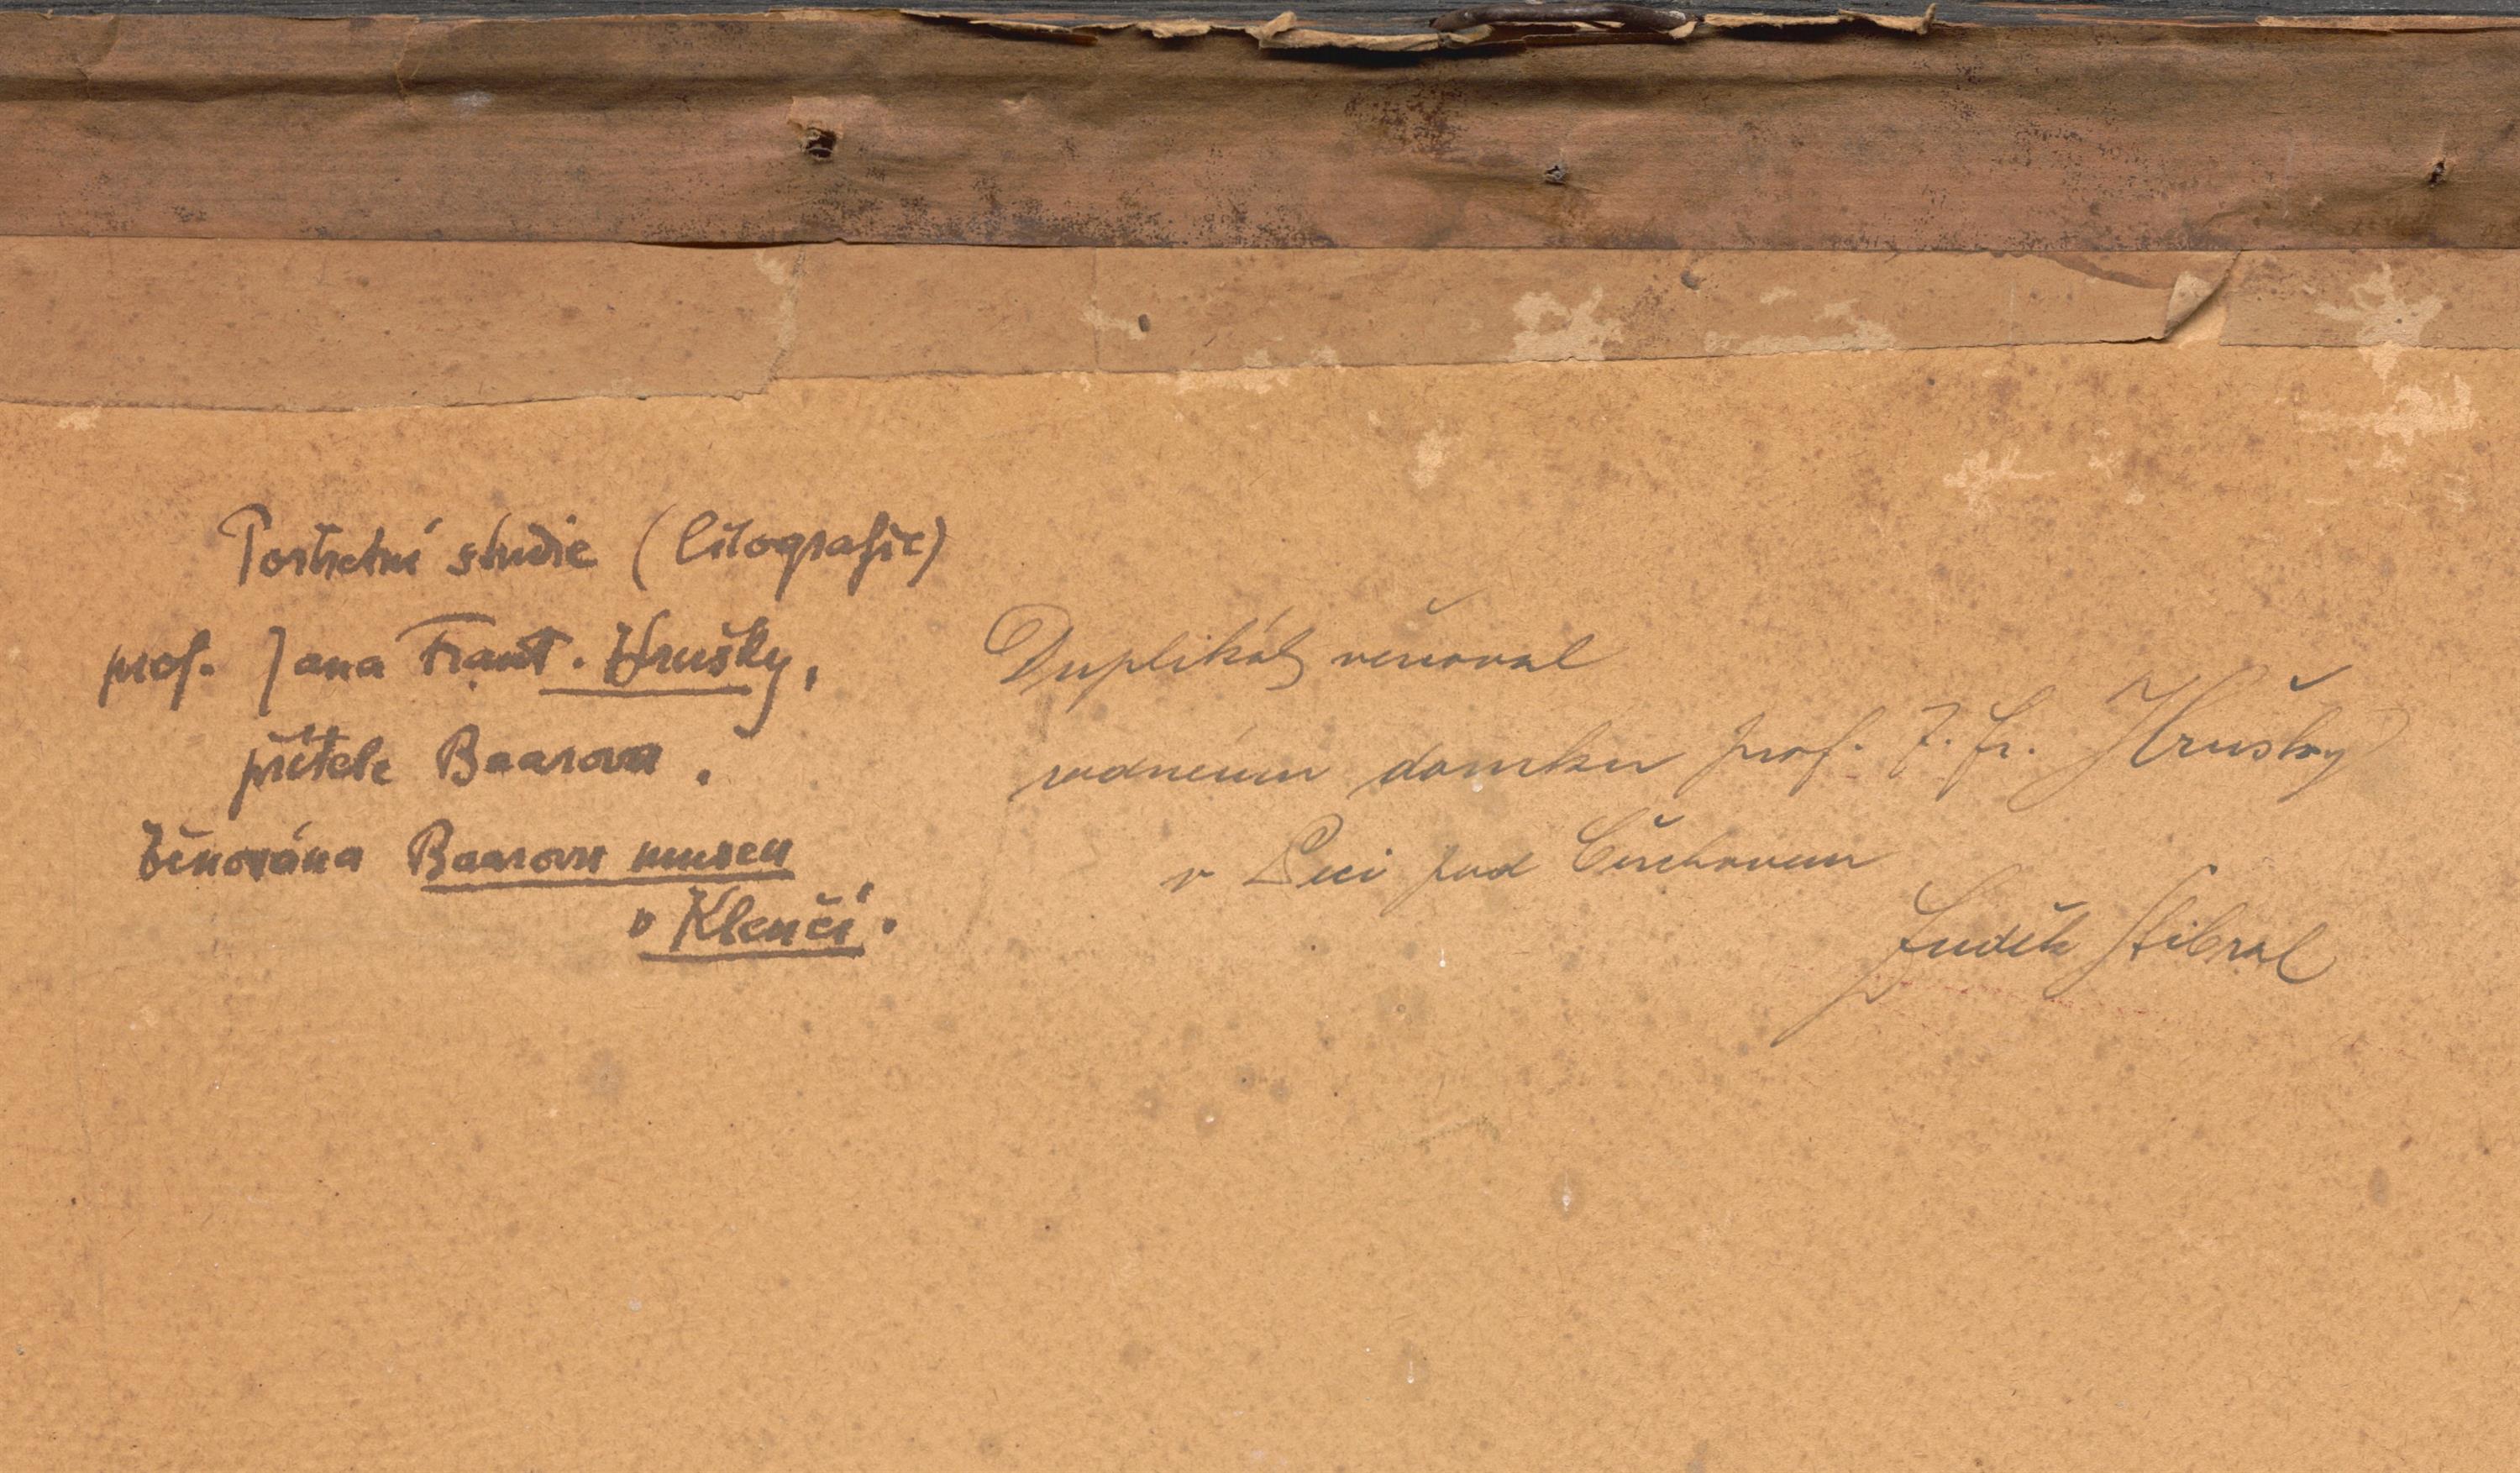 Portretní studie (litografie)
prof. Jana Frant. Hrušky,
přítele Baarova.
Věnována Baarovu museu
v Klenčí.
Duplikát věnoval
rodnému domku prof. J. Fr. Hrušky
v Peci pod Čerchovem
Luděk Stibral